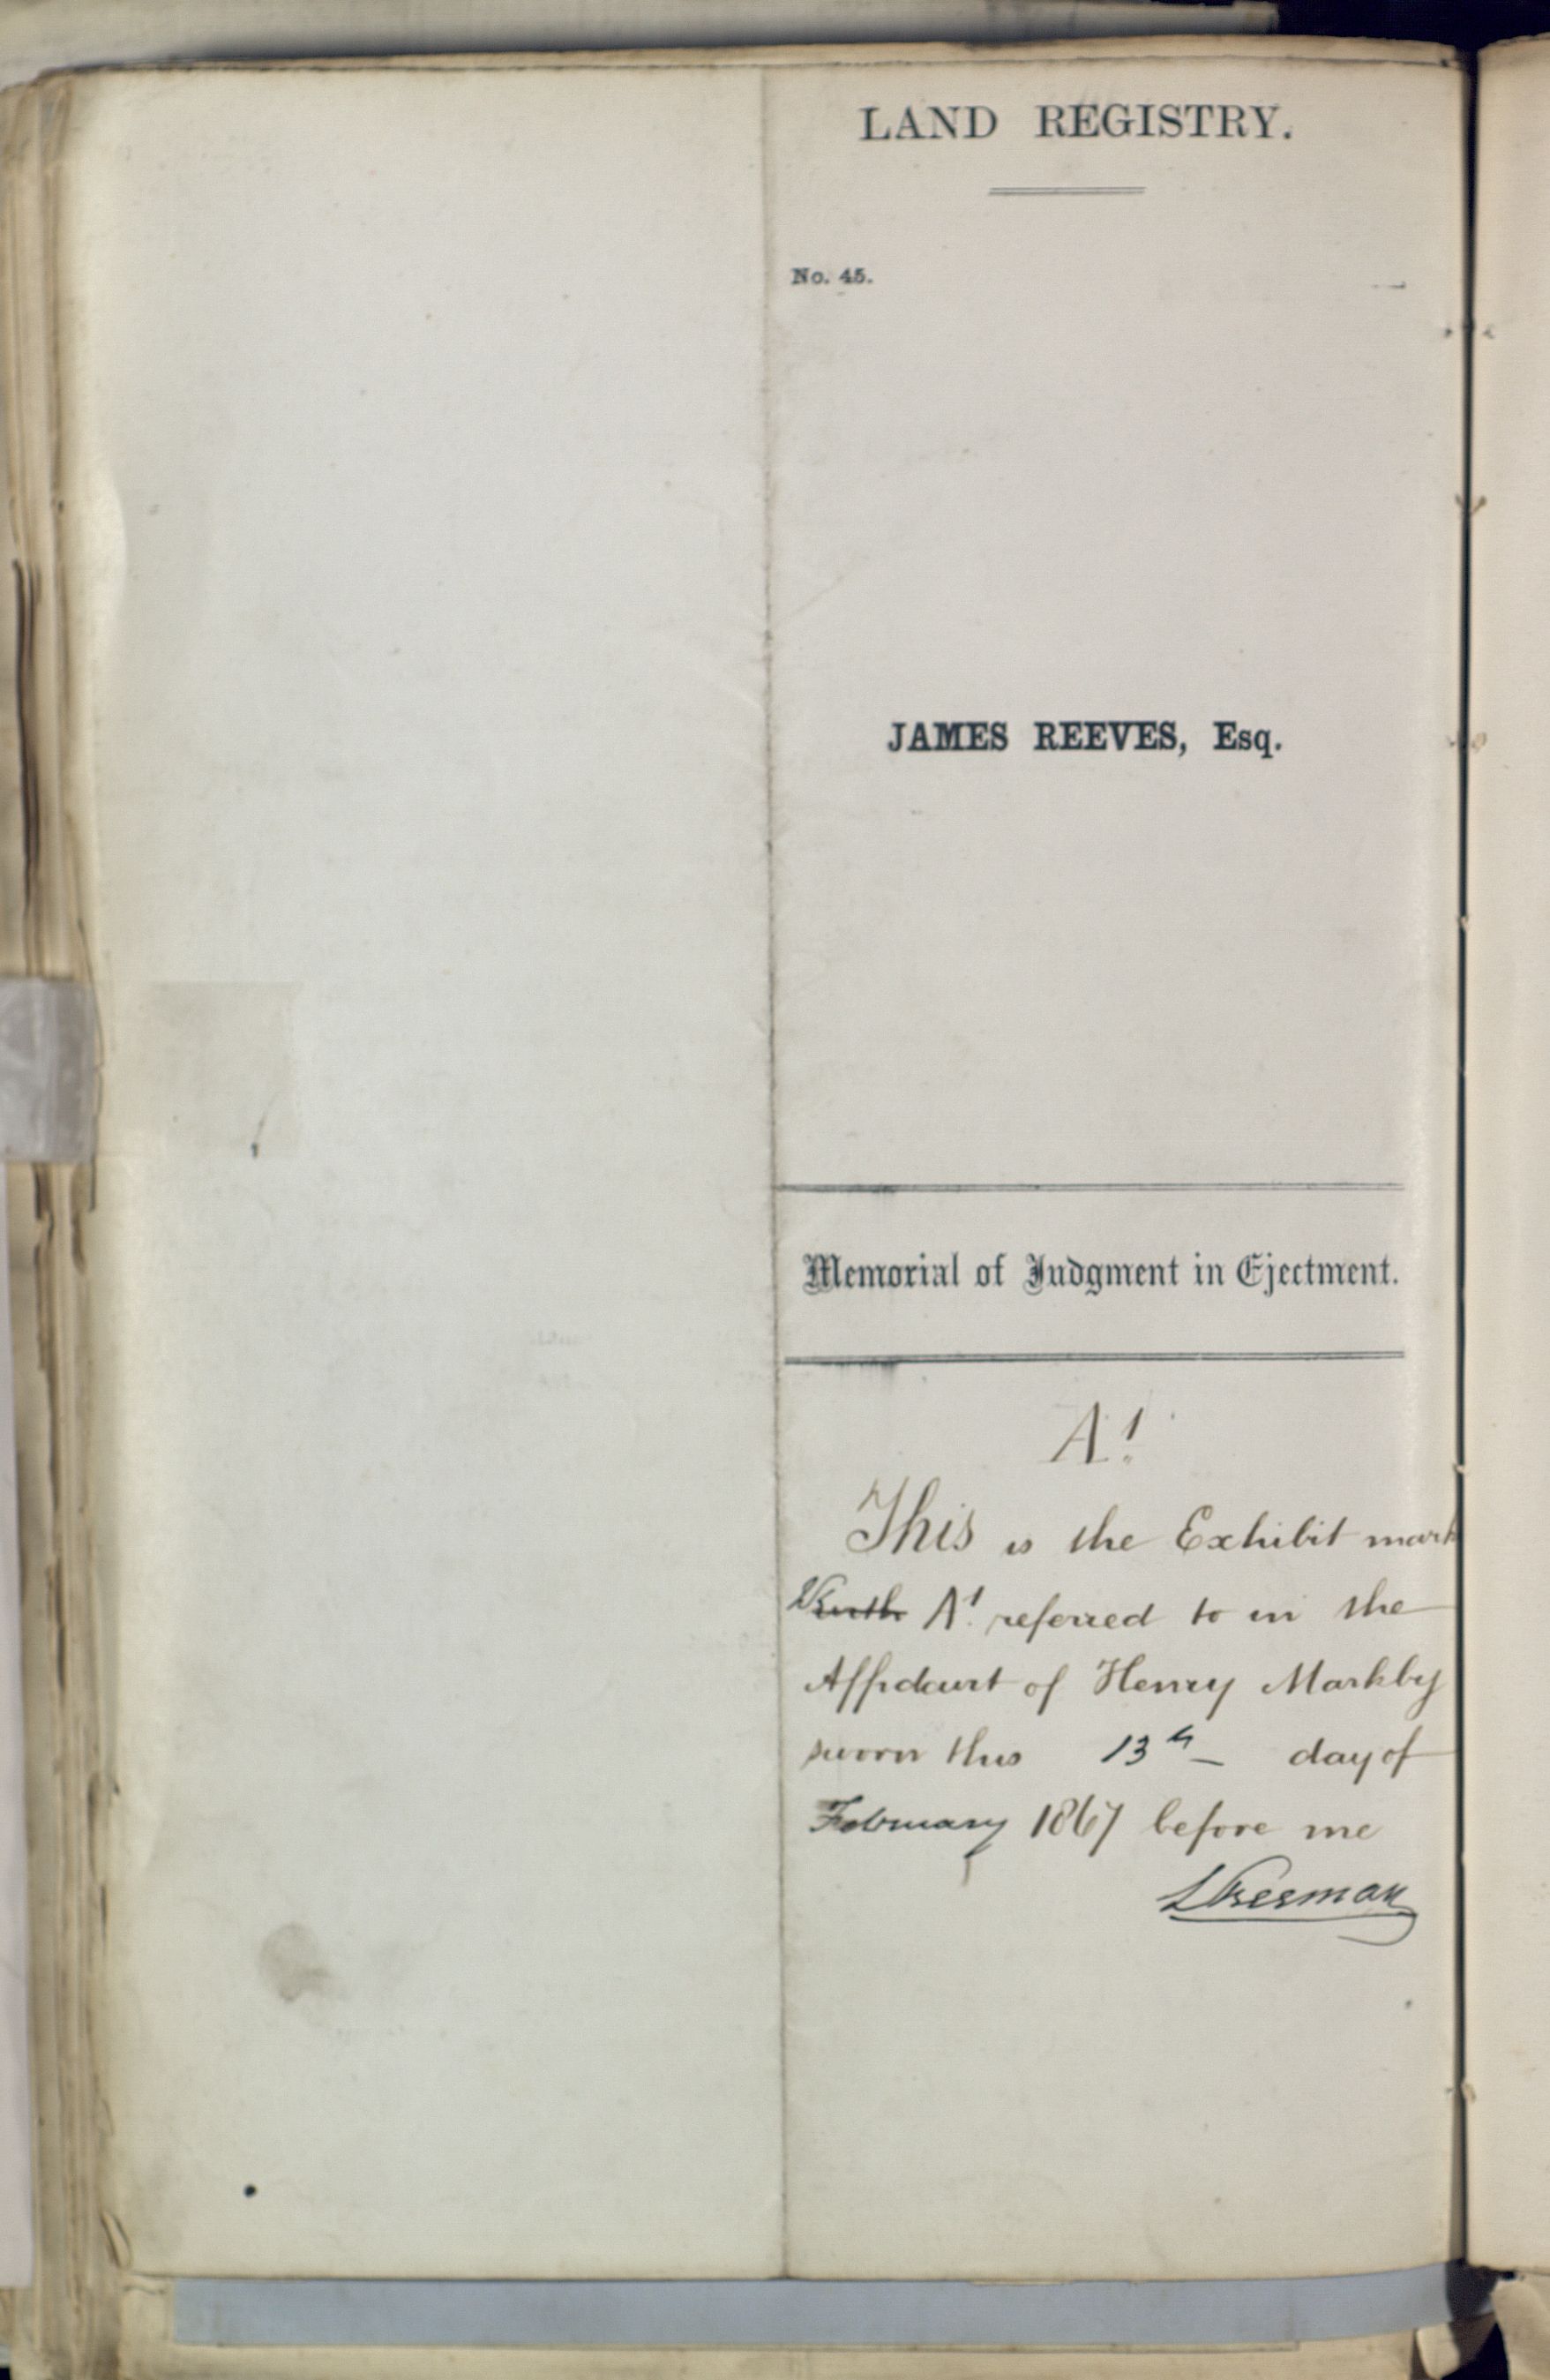 LAND REGISTRY.
No. 45.
JAMES REEVES, Esq.
Memorial of Judgment in Ejectment.
A1.
This is the Exhibit mark
A1. referred to in the
Affidavit of Henry Markby
sworn this 13th day of
February 1867 before me